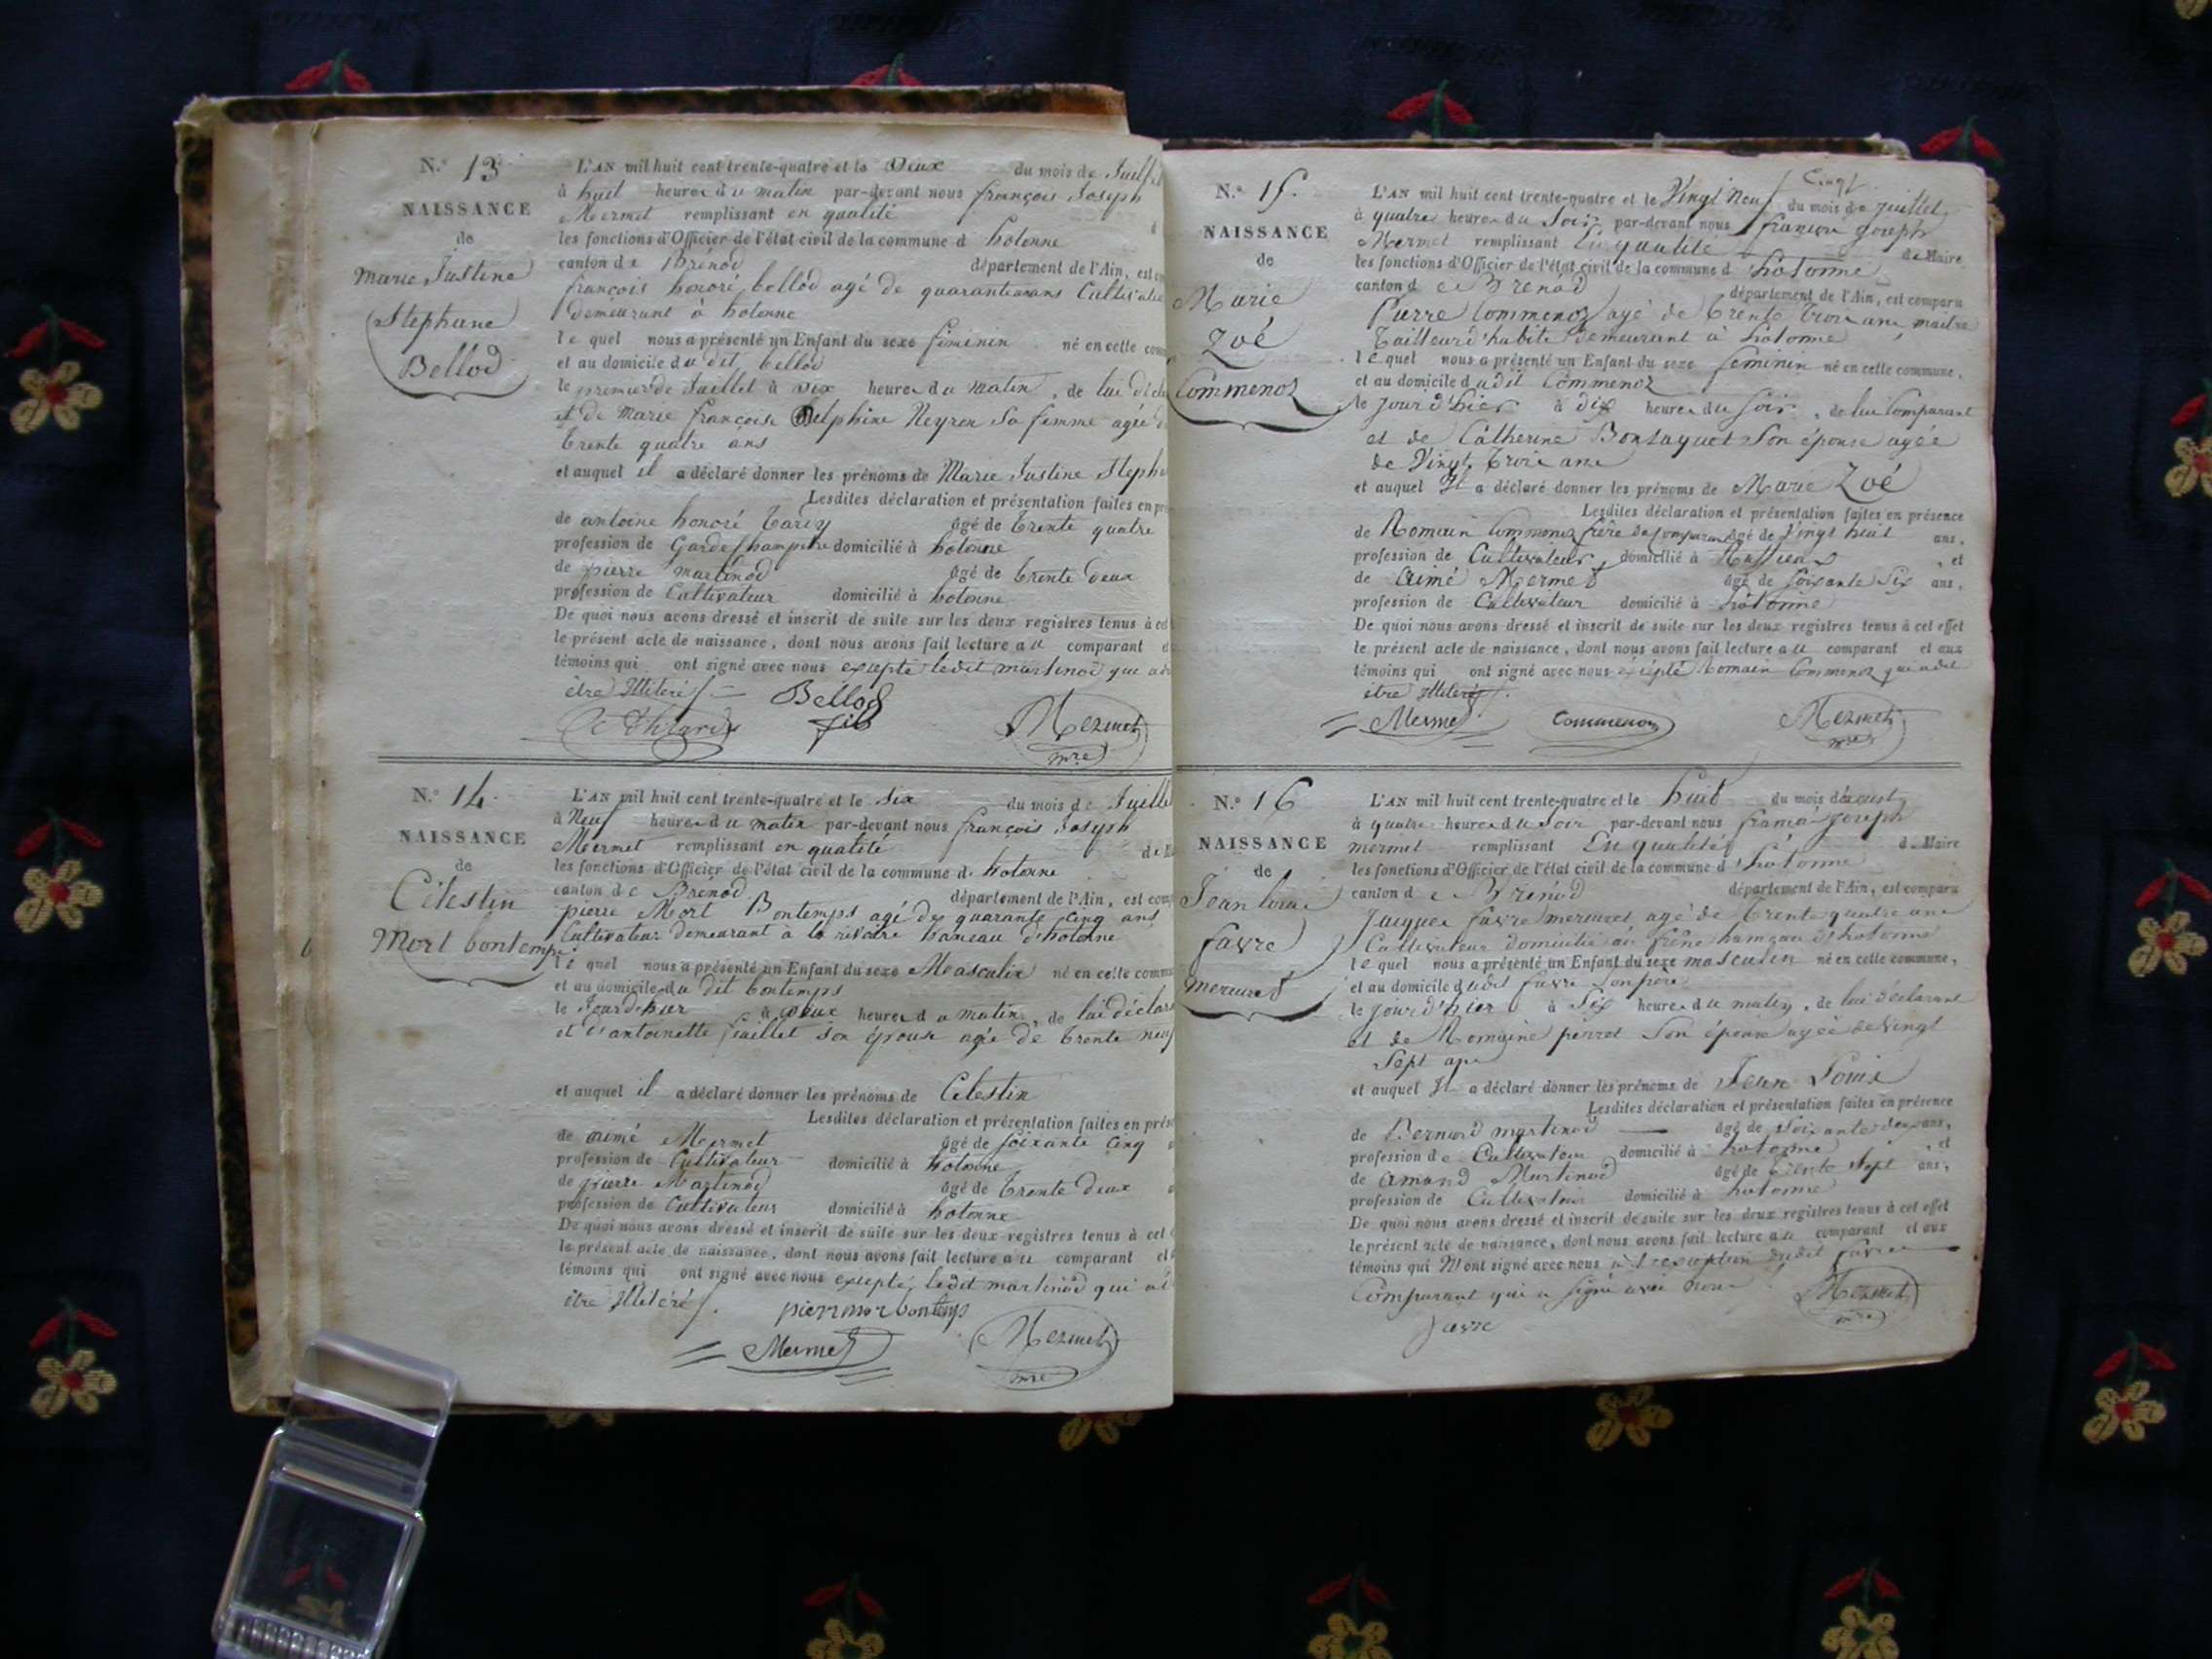 N.° 13
NAISSANCE
de
Marie Justine
Stephane
Bellod
L'AN mil huit cent trente-quatre et le Deux du mois de Juill
à huit heures du matin par-devant nous françois Joseph
Mermet remplissant en qualité
les fonctions d'Officier de l'état civil de la commune d hotonne
canton de Brénod département de l'Ain, est com
françois honoré bellod agé de quarante ans Cultivate
demeurant à hotonne
le quel nous a présenté un Enfant du sexe féminin né en cette com
et au domicile du dit bellod
le premier de Juillet à dix heures du matin, de lui décla
et de Marie françoise Delphine Neyren Sa femme agée d
trente quatre ans
et auquel il a déclaré donner les prénoms de Marie Justine Steph
Lesdites déclaration et présentation faites en pré
de antoine honoré Tardy âgé de trente quatre
profession de Garde Champetre domicilié à hotonne
de pierre martinod âgé de trente deux
profession de Cultivateur domicilié à hotonne
De quoi nous avons dressé et inscrit de suite sur les deux registres tenus à cet
le présent acte de naissance, dont nous avons fait lecture au comparant et
témoins qui ont signé avec nous excepté ledit martinod que a d
être Illiteré
Bellod
fils
Mermet
mre
N.° 14
NAISSANCE
de
Célestin
Mort bontemps
L'AN mil huit cent trente-quatre et le Six du mois de Juille
à Neuf heures du matin par-devant nous françois Joseph
Mermet remplissant en qualité de M
les fonctions d'Officier de l'état civil de la commune d. hotonne
canton de Brénod département de l'Ain, est com
pierre Mort Bontemps agé de quarante cinq ans
Cultivateur demeurant à la rivoire hameau d'hotonne
le quel nous a présenté un Enfant du sexe Masculin né en cette commu
et au domicile du dit bontemps
le Jour d'hier à deux heures du matin, de lui déclar
et d'antoinette Juillet son épouse agée de trente neuf
et auquel il a déclaré donner les prénoms de Celestin
Lesdites déclaration et présentation faites en prés
de aimé Mermet âgé de soixante cinq
profession de Cultivateur domicilié à hotonne
de pierre Martinod âgé de trente deux
profession de Cultivateur domicilié à hotonne
De quoi nous avons dressé et inscrit de suite sur les deux registres tenus à cet
le présent acte de naissance, dont nous avons fait lecture au comparant et
témoins qui ont signé avec nous excepté, ledit martinod qui a d
être Illitéré.
pierrmorbontemps
Mermet
Mermet
mre
N.° 15.
NAISSANCE
de
Marie
Zoé
Commenoz
L'AN mil huit cent trente-quatre et le Vingt Neuf du mois de juillet
à quatre heures du Soir par-devant nous françois Joseph
Mermet remplissant En qualité de Maire
les fonctions d'Officier de l'état civil de la commune d hotonne
canton de Brenod département de l'Ain, est comparu
Pierre Commenoz agé de trente trois ans, maitre
Tailleur d'habits demeurant à hotonne
le quel nous a présenté un Enfant du sexe feminin né en cette commune,
et au domicile du dit Commenoz
le jour d'hier à dix heures du soir, de lui Comparant
et de Catherine Bontaquet Son épouse agée
de Vingt trois ans
et auquel Il a déclaré donner les prénoms de Marie Zoé
Lesdites déclaration et présentation faites en présence
de Romain Commenoz frère du comparant âgé de Vingt huit ans,
profession de Cultivateur, domicilié à et
de aimé Mermet âgé de soixante Six ans,
profession de Cultivateur domicilié à hotonne
De quoi nous avons dressé et inscrit de suite sur les deux registres tenus à cet effet
le présent acte de naissance, dont nous avons fait lecture au comparant et aux
témoins qui ont signé avec nous excepté Romain Commenoz qui a dit
être Illiteré.
Mermet
Commenoz
Mermet
mre
N.° 16
NAISSANCE
de
Jean louis
favre
mermet
L'AN mil huit cent trente-quatre et le huit du mois d'aoust
à quatre heures du Soir par-devant nous françois Joseph
mermet remplissant En qualité de Maire
les fonctions d'Officier de l'état civil de la commune d hotonne
canton de Brenod département de l'Ain, est comparu
Jacques favre mermet agé de trente quatre ans
Cultivateur domicilié au frêne hameau d'hotonne
le quel nous a présenté un Enfant du sexe masculin né en cette commune,
et au domicile dudit favre Son père
le jour d'hier à Six heures du matin, de lui déclarant
et de Romaine perret Son épouse agée de vingt
Sept ans
et auquel Il a déclaré donner les prénoms de Jean Louis
Lesdites déclaration et présentation faites en présence
de Bernard martinod âgé de soixante deux ans,
profession de Cultivateur domicilié à hotonne, et
de amand Martinod âgé de trente Sept ans,
profession de Cultivateur domicilié à hotonne
De quoi nous avons dressé et inscrit de suite sur les deux registres tenus à cet effet
le présent acte de naissance, dont nous avons fait lecture au comparant et aux
témoins qui N'ont signé avec nous à l'exception dudit favre
Comparant qui a signé avec nous
favre
Mermet
mre